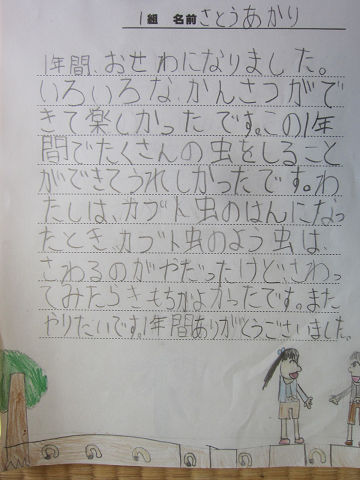 1組 名前 さとうあかり
1年間、おせわになりました。
いろいろな、かんさつがで
きて楽しかったです。この1年
間でたくさんの虫をしること
ができてうれしかったです。わ
たしは、カブト虫のはんになっ
たとき、カブト虫のよう虫は、
さわるのがやだったけど、さわっ
てみたらきもちがよかったです。また
やりたいです。1年間ありがとうございました。